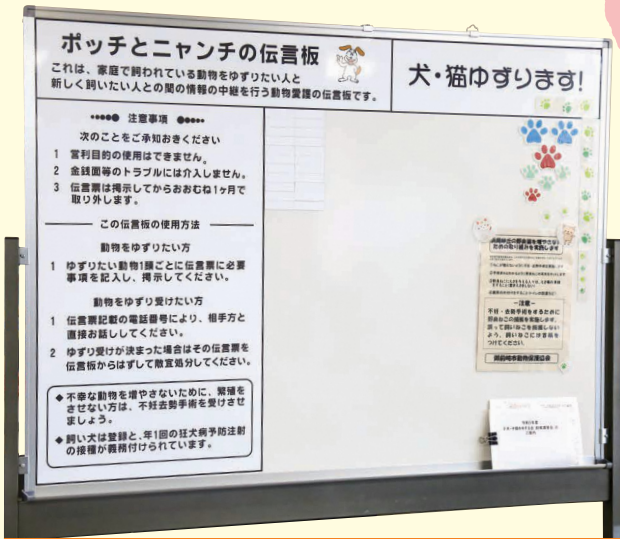 ポッチとニャンチの伝言板
これは、家庭で飼われている動物をゆずりたい人と
新しく飼いたい人との間の情報の中継を行う動物愛護の伝言板です。
犬・猫ゆずります!
注意事項
次のことをご承知おきください
1 営利目的の使用はできません。
2 金銭面等のトラブルには介入しません。
3 伝言票は掲示してからおおむね1ヶ月で
取り外します。
この伝言板の使用方法
動物をゆずりたい方
1 ゆずりたい動物1頭ごとに伝言票に必要
事項を記入し、掲示してください。
動物をゆずり受けたい方
1 伝言票記載の電話番号により、相手方と
直接お話ししてください。
2 ゆずり受けが決まった場合はその伝言票を
伝言板からはずして敵宜処分してください。
◆ 不幸な動物を増やさないために、繁殖を
させない方は、不妊去勢手術を受けさせ
ましょう。
◆ 飼い犬は登録と、年1回の狂犬病予防注射
の接種が義務付けられています。
ための取り組みを実施します
ー注意ー
不妊・去勢手術をするために
野良ねこの捕獲を実施します。
誤って飼いねこを捕獲しない
よう、飼いねこには首輪を
つけてください。